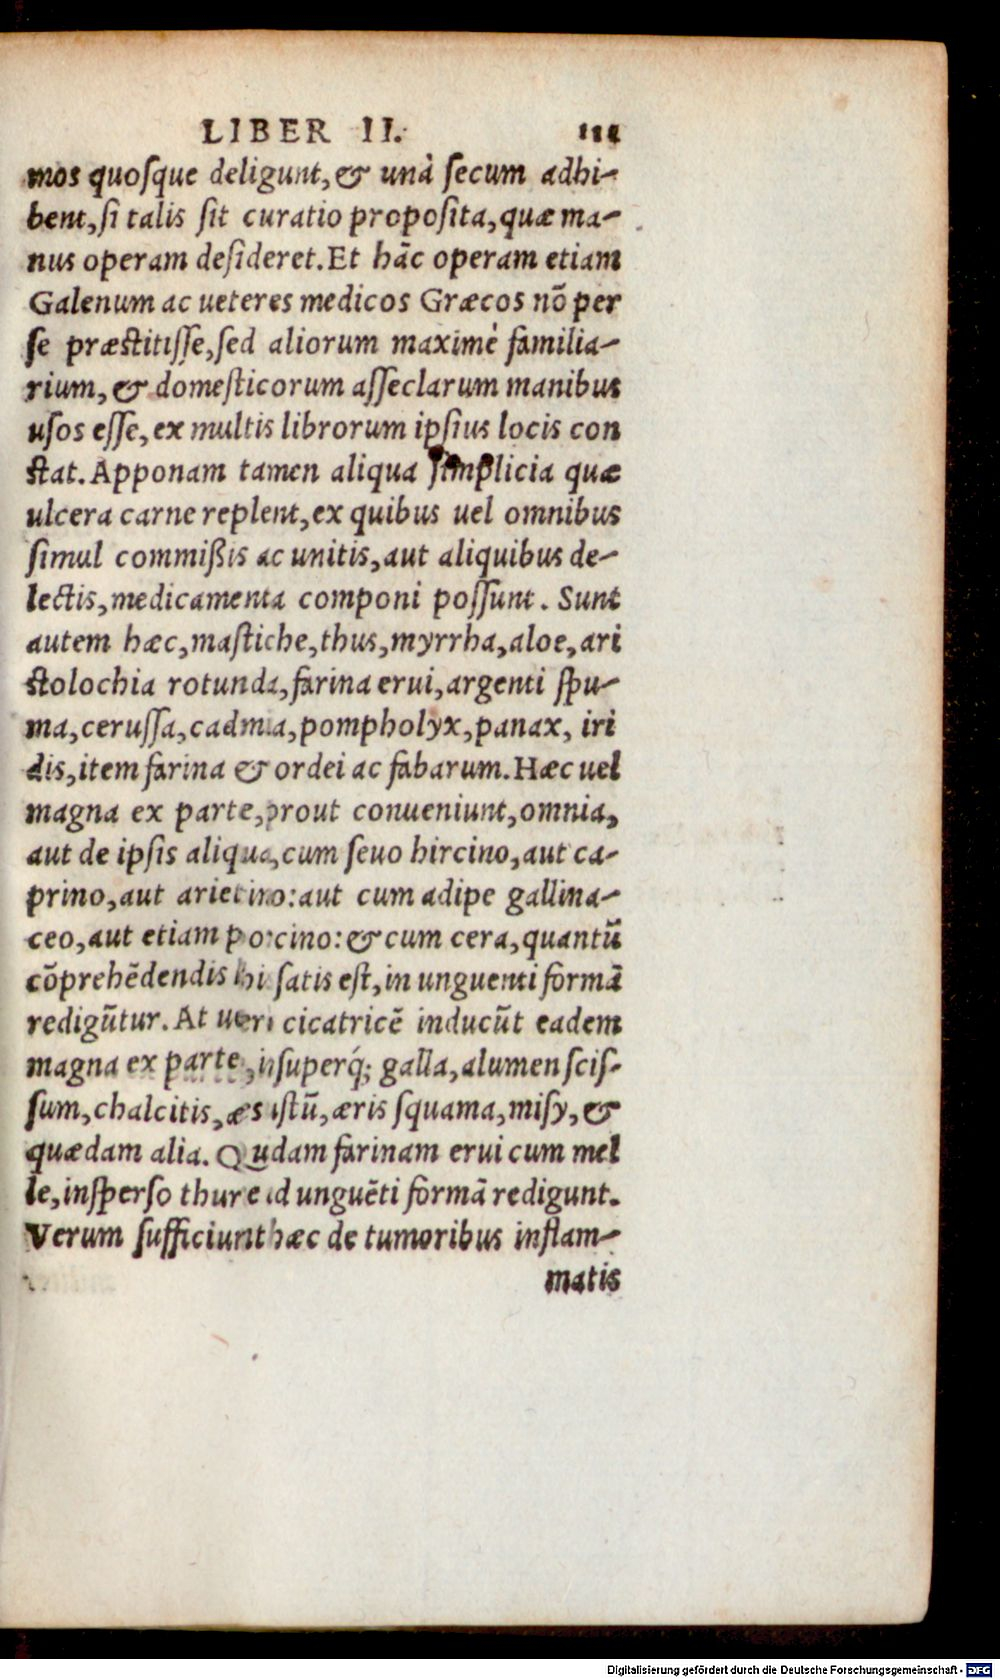 LIBER II. 111
mos quosque deligunt, & unà secum adhi-
bent, si talis sit curatio proposita, quæ ma-
nus operam desideret. Et hãc operam etiam
Galenum ac ueteres medicos Græcos nõ per
se præstitisse, sed aliorum maximè familia-
rium, & domesticorum asseclarum manibus
usos esse, ex multis librorum ipsius locis con
stat. Apponam tamen aliqua simplicia quæ
ulcera carne replent, ex quibus uel omnibus
simul commißis ac unitis, aut aliquibus de-
lectis, medicamenta componi possunt. Sunt
autem hæc, mastiche, thus, myrrha, aloe, ari
stolochia rotunda, farina erui, argenti spu-
ma, cerussa, cadmia, pompholyx, panax, iri
dis, item farina & ordei ac fabarum. Hæc uel
magna ex parte, prout conueniunt, omnia,
aut de ipsis aliqua, cum seuo hircino, aut ca-
prino, aut arietino: aut cum adipe gallina-
ceo, aut etiam porcino: & cum cera, quantũ
cõprehẽdendis his satis est, in unguenti formã
redigũtur. At uerò cicatricẽ inducũt eadem
magna ex parte, insuperq́; galla, alumen scis-
sum, chalcitis, æs ustũ, æris squama, misy, &
quædam alia. Quidam farinam erui cum mel
le, insperso thure ad unguẽti formã redigunt.
Verum sufficiunt hæc de tumoribus inflam-
matis
Digitalisierung gefördert durch die Deutsche Forschungsgemeinschaft - DFG